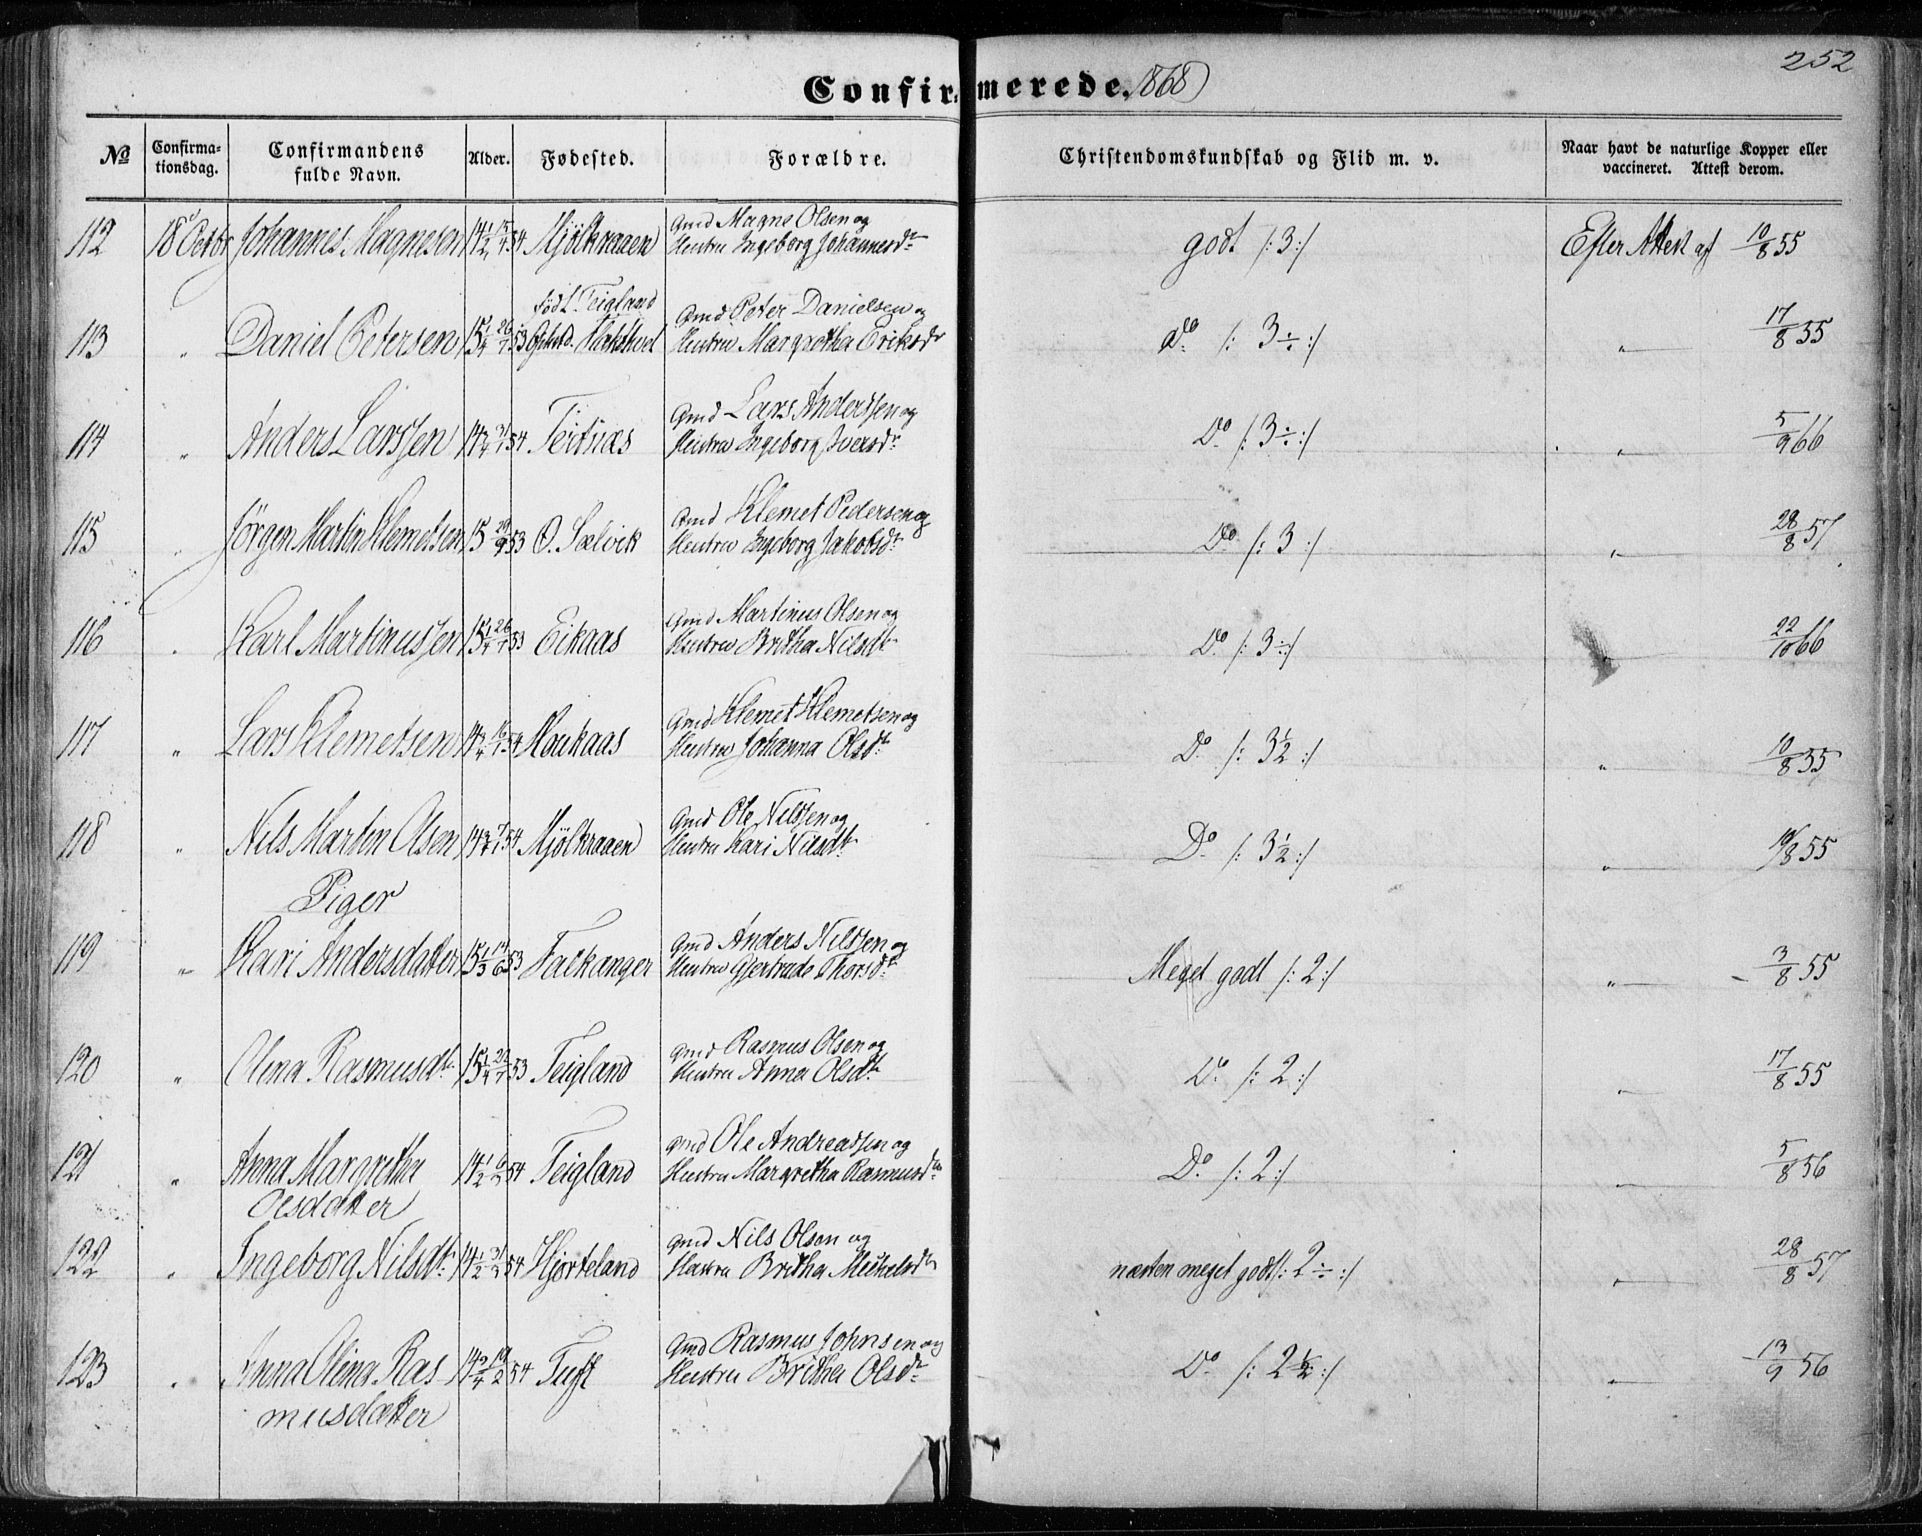 252
Confirmerede. 1868
No
Confirma-
tionsdag.
Confirmandens
fulde Navn.
Alder.
Fødested.
Forældre.
Christendomskundskab og Flid m. v.
Naar havt de naturlige Kopper eller
vaccineret. Attest derom.
112 18 Octbr Johannes Magnesen 14 1/2 15/4 54 Mjölkraaen Gmd Magne Olsen og
Hustru Ingeborg Johannesdr
godt /: 3 :/ Efter Attest af 10/8 55
113 " Daniel Petersen 15 1/4 26/7 53 födt. Teigland
Ophold. Hatstvet
Gmd Peter Danielsen og
Hustru Margretha Eriksdr
do /: 3 ÷ :/ " 17/8 55
114 " Anders Larssen 14 3/4 31/1 54 Teitnæs Gmd Lars Anderssen og
Hustru Ingeborg Iversdr
Do /: 3 ÷ :/ " 5/9 66
115 " Jörgen Martin Klemetsen 15 29/9 53 O. Sælvik Gmd Klemet Pedersen og
Hustru Ingeborg Jakobsdr
Do /: 3 :/ " 28/8 57
116 " Karl Martinussen 15 1/4 26/7 53 Eikaas Gmd Martinus Olsen og
Hustru Britha Nilsdtr
Do /: 3 ÷ :/ " 22/10 66
117 " Lars Klemetsen 14 3/4 16/1 54 Haukaas Gmd Klemet Klemetsen og
Hustru Johanna Olsdtr
Do /: 3 1/2 :/ " 10/8 55
118 " Nils Martin Olsen 14 3/4 7/1 54 Mjölkraaen Gmd Ole Nilssen og
Hustru Kari Nilsdtr
Do /: 3 1/2 :/ " 10/8 55
Piger
119 " Kari Andersdatter 15 1/3 14/6 53 Falkanger Gmd Anders Nilssen og
Hustru Gjertrude Thorsdtr
Meget godt /: 2 :/ " 3/8 55
120 " Olina Rasmusdtr 15 1/4 22/7 53 Teigland Gmd Rasmus Olsen og
Hustru Anna Olsdtr
Do /: 2 :/ " 17/8 55
121 " Anna Margretha
Olsdatter
14 1/2 6/3 54 Teigland Gmd Ole Andreassen og
Hustru Margretha Rasmusdtr
Do /: 2 :/ " 5/8 56
122 " Ingeborg Nilsdtr 14 1/2 31/3 54 Hjorteland Gmd Nils Olsen og
Hustru Britha Michelsdtr
næsten meget godt /: 2 ÷ :/ " 28/8 57
123 " Anna Olina Ras
musdatter
14 3/4 19/2 54 Tuft Gmd Rasmus Johnsen og
Hustru Britha Olsdtr
Do /: 2 1/2 :/ " 13/9 56